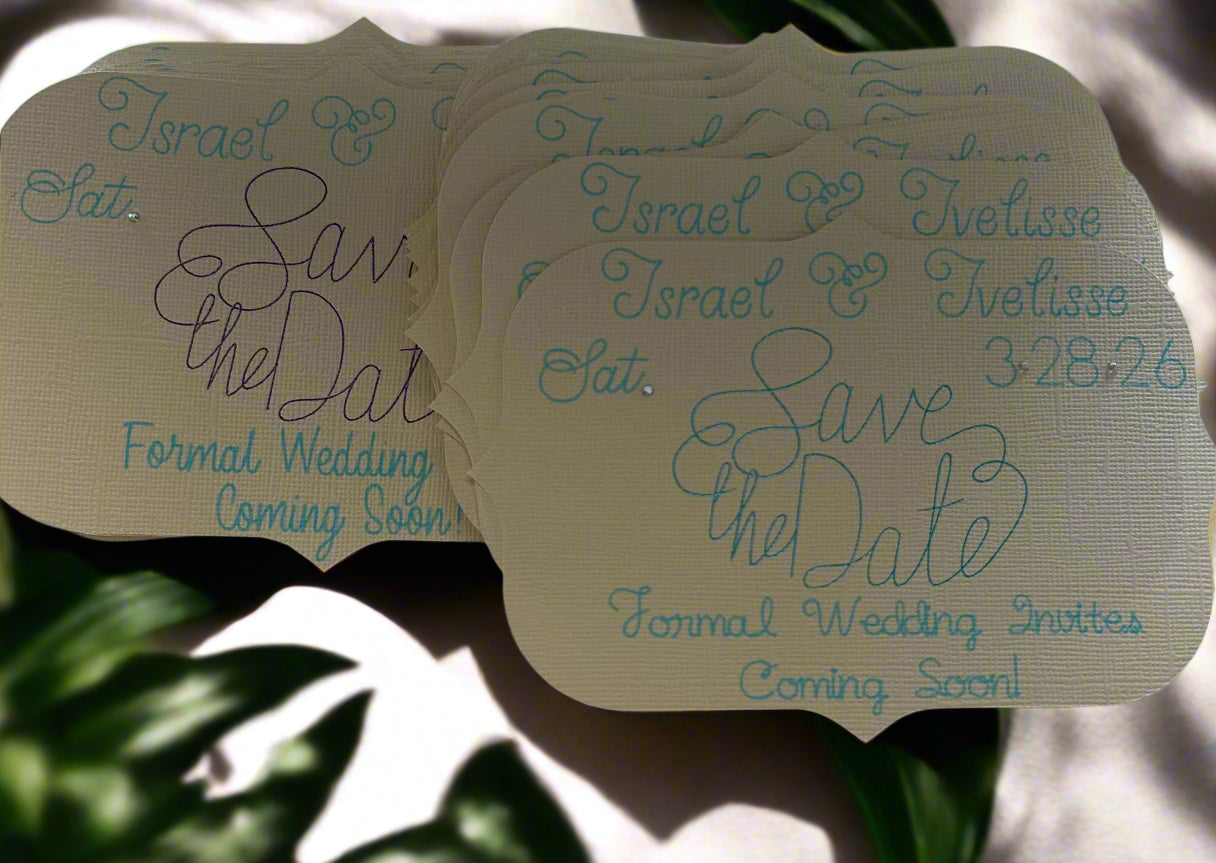 Israel &
Sat.
Sav
the Dat
Formal Wedding
Coming Soon!
Israel & Ivelisse
Israel & Ivelisse
Sat. 3·28·26
Save
the Date
Formal Wedding Invites
Coming Soon!